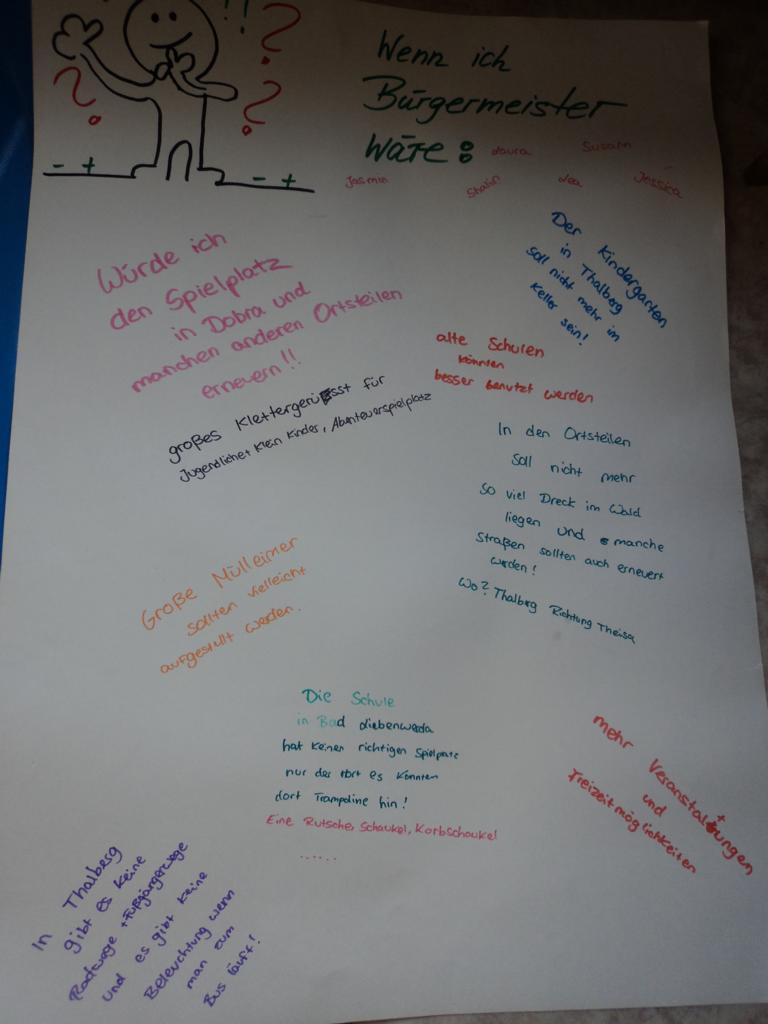 !!
? ? ?
- +
- +
Wenn ich
Bürgermeister
wäre:
Laura Susann
Jasmin Lea Jessica
Würde ich
den Spielplatz
in Dobra und
manchen anderen Ortsteilen
erneuern!!
großes Klettergerüsst für
Jugendliche+Klein Kinder, Abenteuerspielplatz
Der Kindergarten
in Thalberg
soll nicht mehr im
Keller sein!
alte Schulen
könnten
besser benutzt werden
In den Ortsteilen
soll nicht mehr
so viel Dreck im Wald
liegen und manche
Straßen sollten auch erneuert
werden!
Wo? Thalberg Richtung Theisa
Große Mülleimer
sollten vielleicht
aufgestellt werden.
Die Schule
in Bad Liebenwerda
hat keinen richtigen Spielplatz
nur der es könnten
dort Trampoline hin!
Eine Rutsche, Schaukel, Korbschaukel
......
mehr Veranstaltungen
und
Freizeitmöglichkeiten
In Thalberg
gibt es keine
Radwege +Fußgängerwege
und es gibt keine
Beleuchtung wenn
man zum
Bus läuft!